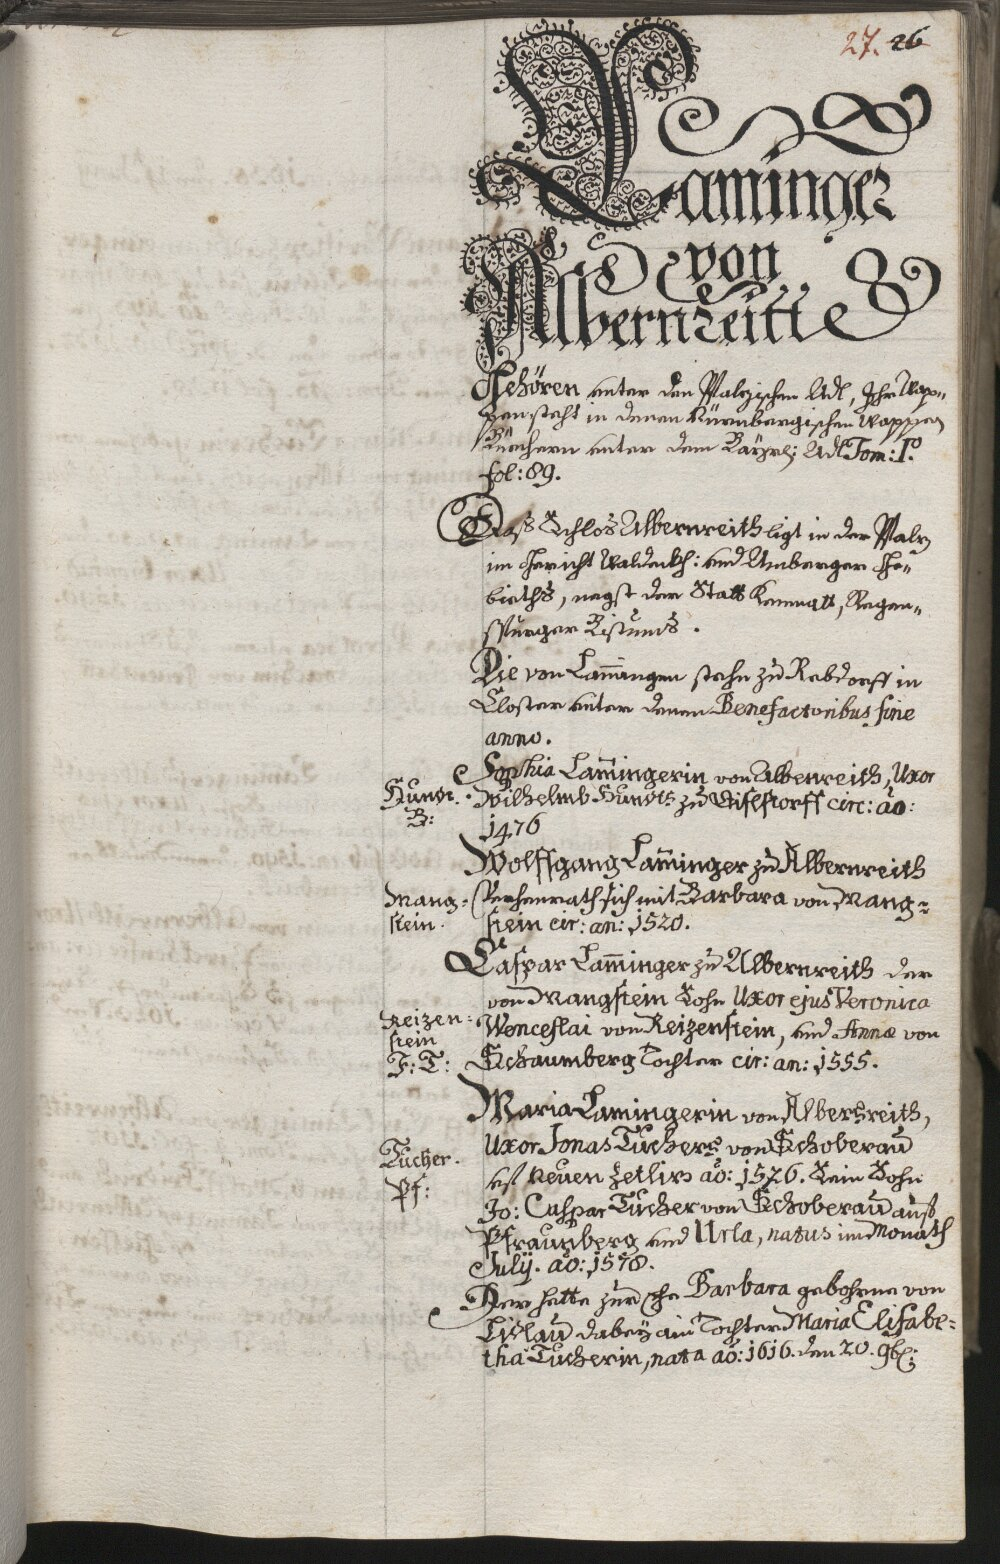 27. 26
Laminger
von
Albernreitt
Gehören unter den Pfalzischen Adl, Ihr Wap„
pen steht in denen Nürnbergischen Wappen
Büechern unter dem Bayrl: Adl Tom: I.o
fol: 89.
Daß Schlos Albernreith ligt in der Pfalz
im Gericht Waldeckh: und Amberger Ge„
bieths, negst der Statt Kemnatt, Regen„
spurger Bistumbs.
Die von Lam̄ingen stehn zu Rebdorff in
Closter unter denen Benefactoribus sine
anno.
Sophia Lam̄ingerin von Albenreith, Uxor
Hundt. Wilhelmb Hundts zu circ: ao:
B: 1476
Wolffgang Lam̄inger zu Albernreith
Mang= Verheurath sich mit Barbara von Mang=
stein. stein cir: an: 1520.
Caspar Lam̄inger zu Albernreith der
von Mangstein Sohn Uxor ejus Veronica
Reizen= Wenceslai von Reizenstein, und Annæ von
stein
F: T: Schaumberg Tochter cir: an: 1555.
Maria Lamingerin von Albersreith,
Tucher. Uxor Jonas Tuchers von Schoberau
Pf: uf Neuen Zetlirs ao: 1576. Sein Sohn
Jo: Caspar Tucher von Schoberau auf
Pfraumberg und Urla, natus im Monath
July. ao: 1578.
Der hatte zur Ehe Barbara gebohrne von
Lißlau dabey ain Tochter Maria Elisabe=
tha Tucherin, nata ao: 1616. den 20. 9b: